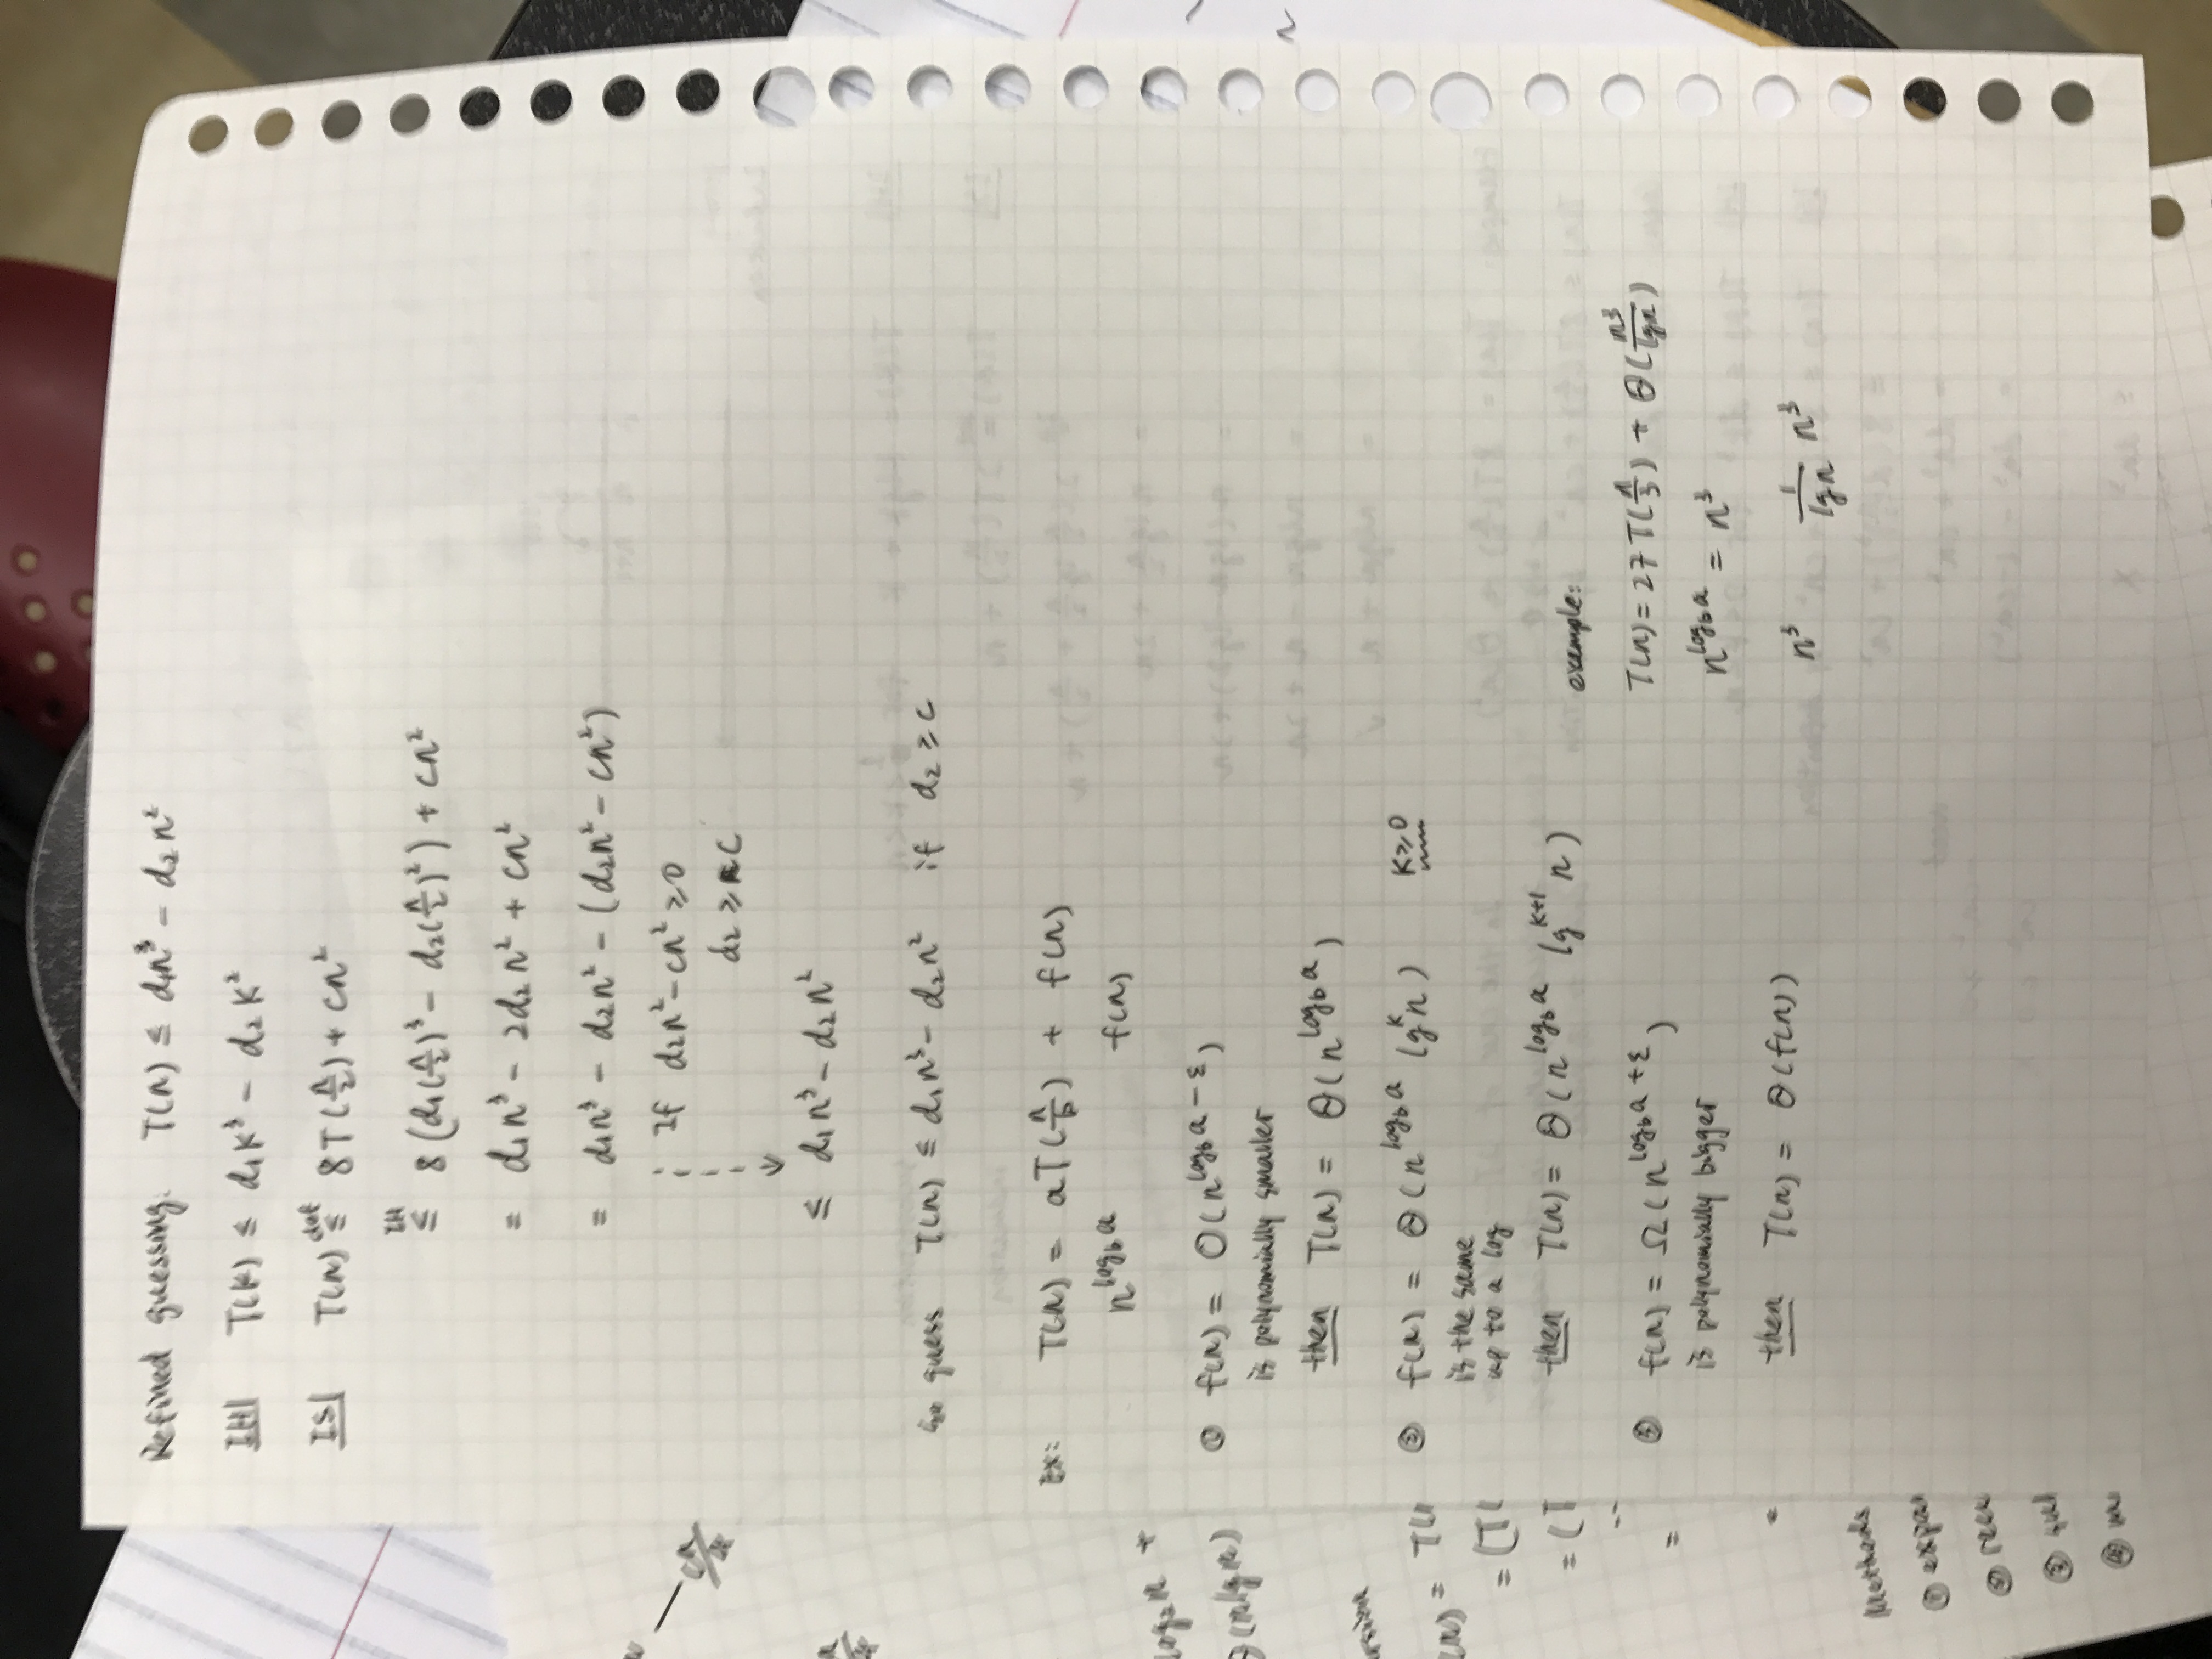 Refined guessing. T(n) ≤ d₁n³ - d₂n²
IH| T(k) ≤ d₁k³ - d₂k²
IS| T(n) ≤ (def) 8T(n/2) + cn²
≤ (IH) 8(d₁(n/2)³ - d₂(n/2)²) + cn²
= d₁n³ - 2d₂n² + cn²
= d₁n³ - d₂n² - (d₂n² - cn²)
If d₂n² - cn² ≥ 0
d₂ ≥ c
≤ d₁n³ - d₂n²
So guess T(n) ≤ d₁n³ - d₂n² if d₂ ≥ c
Ex: T(n) = aT(n/b) + f(n)
n^(log_b a) f(n)
① f(n) = O(n^(log_b a - ε))
is polynomially smaller
then T(n) = Θ(n^(log_b a))
② f(n) = Θ(n^(log_b a) lg^k n) k≥0
is the same
up to a log
then T(n) = Θ(n^(log_b a) lg^(k+1) n)
③ f(n) = Ω(n^(log_b a + ε))
is polynomially bigger
then T(n) = Θ(f(n))
example:
T(n) = 27T(n/3) + Θ(n³/lgn)
n^(log_b a) = n³
n³ 1/lgn n³
cn/4
log₂n +
Θ(nlgn)
= T(
= (T(
= (T
--
=
=
Methods
① expan
②
③
④